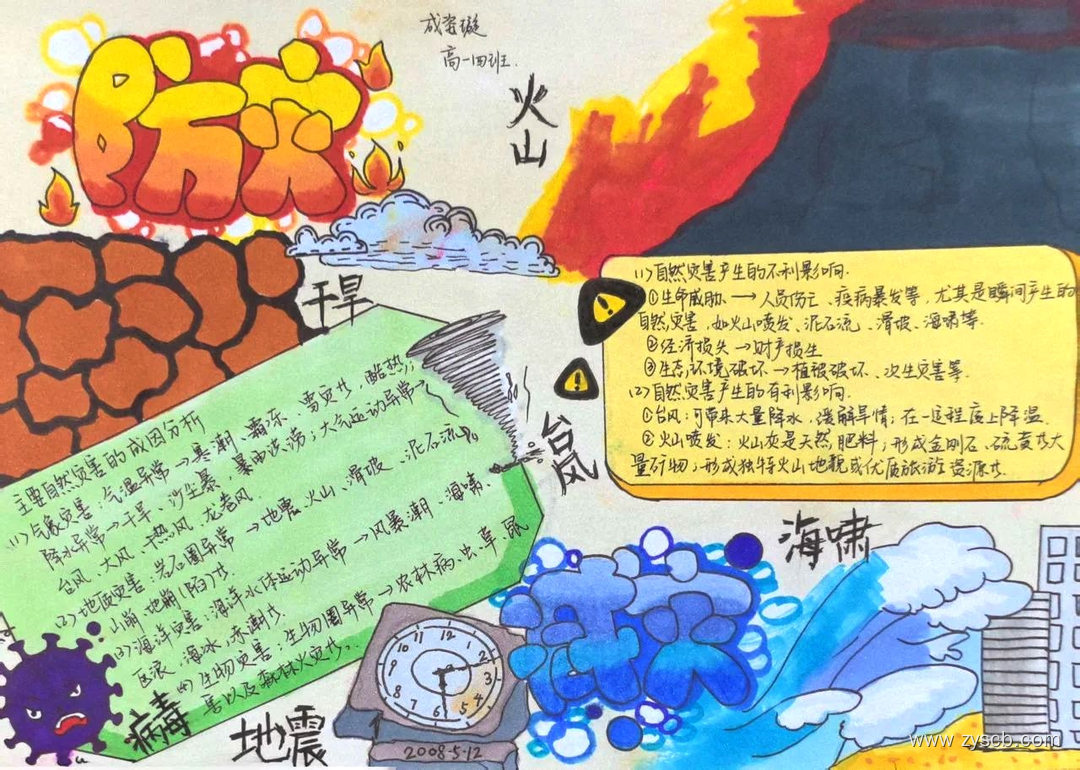 防灾
高一四班.
火山
干旱
(1)自然灾害产生的不利影响.
①生命威胁→人员伤亡、疾病暴发等,尤其是瞬间产生的
自然灾害,如火山喷发、泥石流、滑坡、海啸等.
②经济损失→财产损生
③生态环境破坏→植被破坏、次生灾害等.
(2)自然灾害产生的有利影响.
①台风:可带来大量降水,缓解旱情;在一定程度上降温.
②火山喷发:火山灰是天然肥料;形成金刚石、硫黄等大
量矿物;形成独特火山地貌或优质旅游资源等.
台风
主要自然灾害的成因分析
(1)气象灾害:气温异常→寒潮、霜冻、雪灾等,酷热;
降水异常→干旱、沙尘暴,暴雨洪涝;大气运动异常→
台风、大风、干热风、龙卷风
(2)地质灾害:岩石圈异常→地震、火山、滑坡、泥石流、
山崩、地崩(陷)等
(3)海洋灾害:海洋水体运动异常→风暴潮、海啸、
巨浪、海冰、赤潮等
(4)生物灾害:生物圈异常→农林病、虫、草、鼠
害以及森林火灾等.
海啸
减灾
病毒
地震
11 12 1 2 3 4 5 6 7 8 9 10
2008·5·12
www.zyscb.com